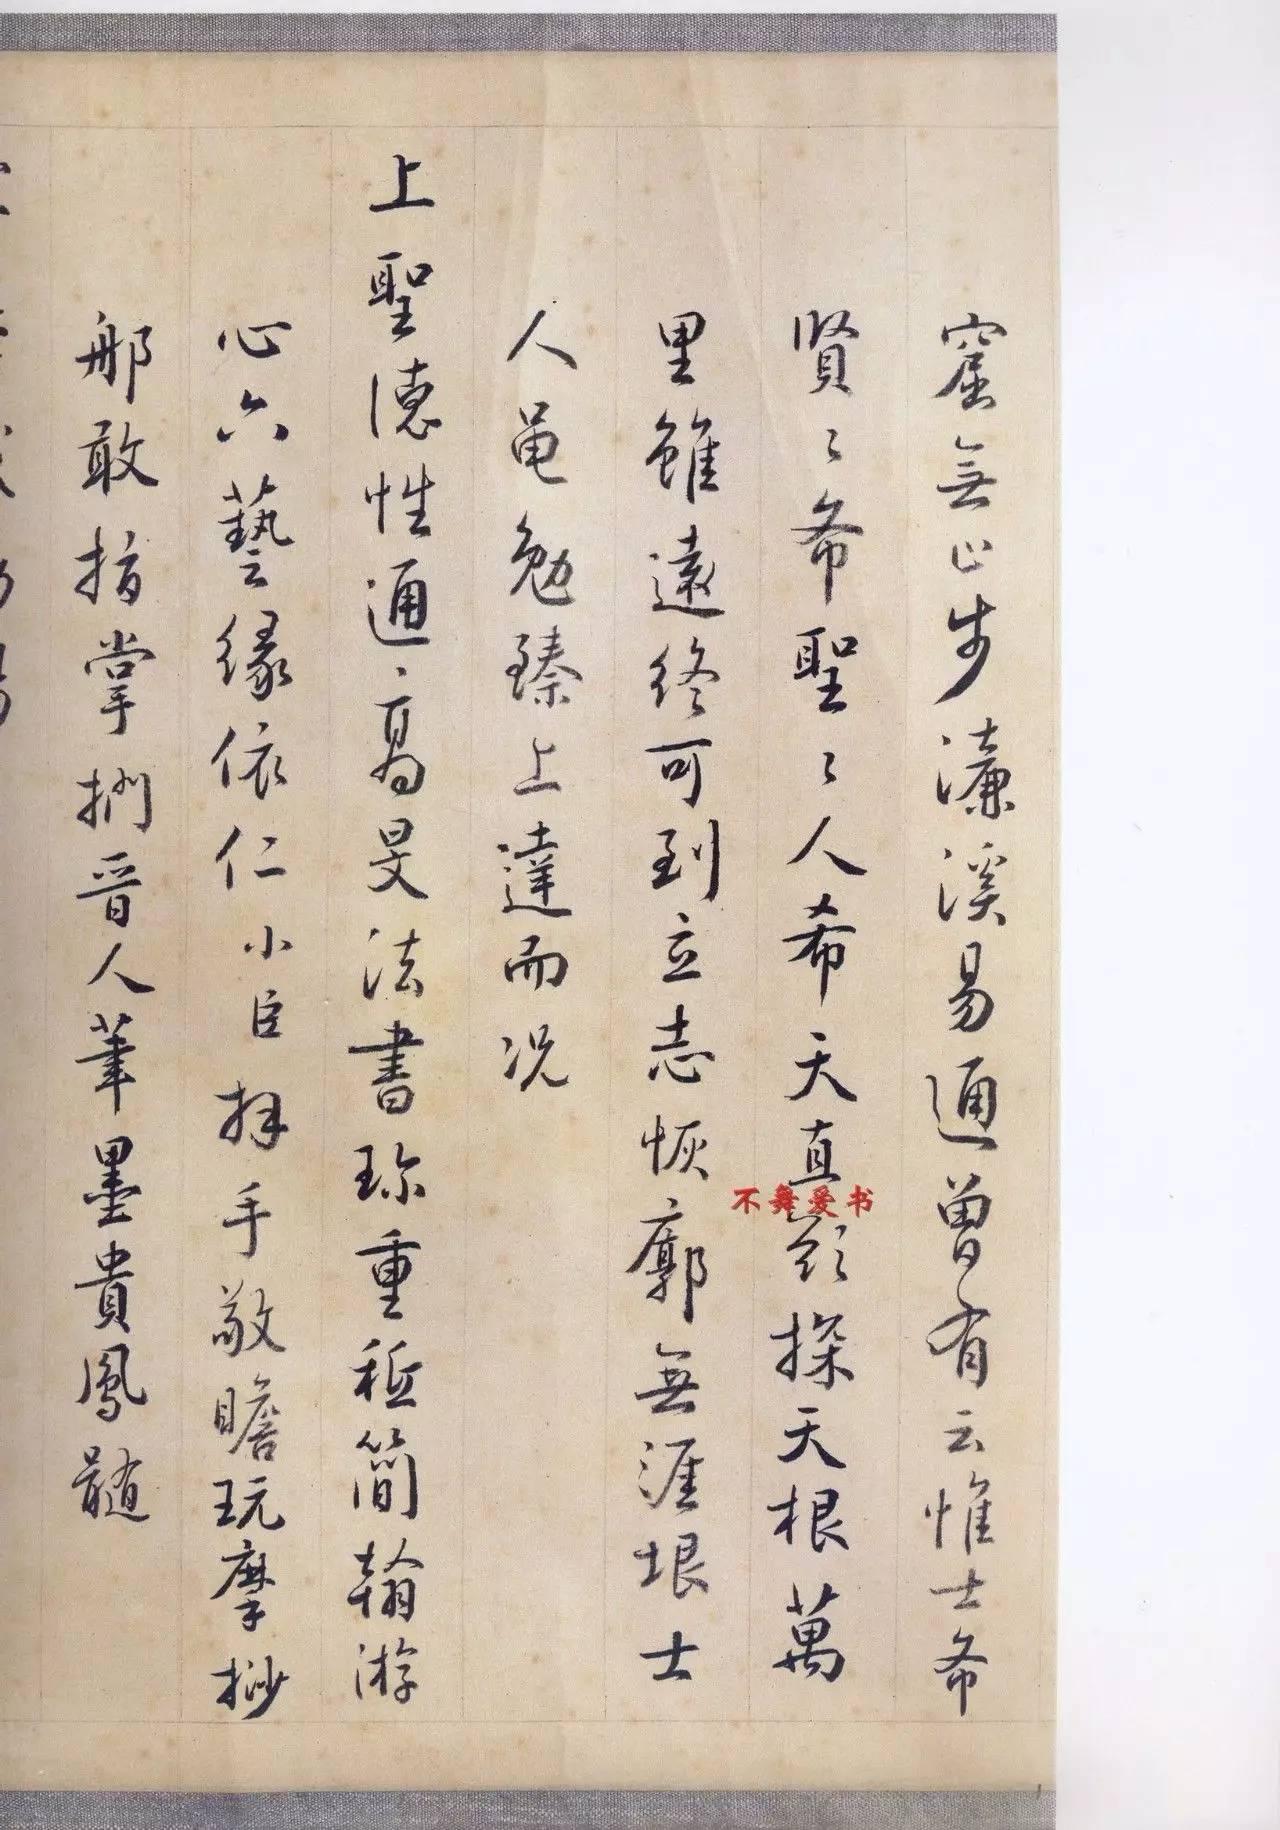 窟無止步濂溪易通曾有云惟士希
賢〻希聖〻人希天直欲探天根萬
里雖遠終可到立志恢廓無涯垠士
人黽勉臻上達而況
上聖德性通高旻法書珍重秪簡翰游
心六藝緣依仁小臣拜手敬瞻玩摩挱
那敢指掌捫晉人筆墨貴鳳髓
不舞爱书